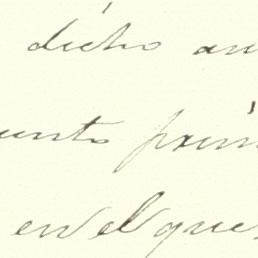 dicho an
unto prim
en el que